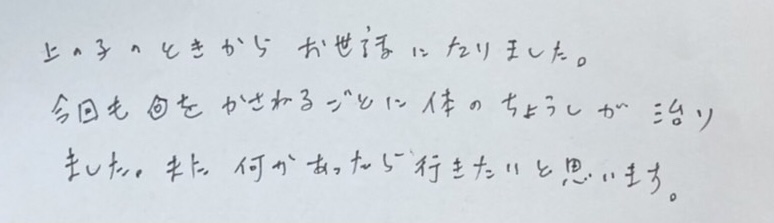 上の子のときから お世話になりました。
今回も 回を かさねるごとに 体の ちょうしが 治り
ました。また 何かあったら 行きたいと思います。